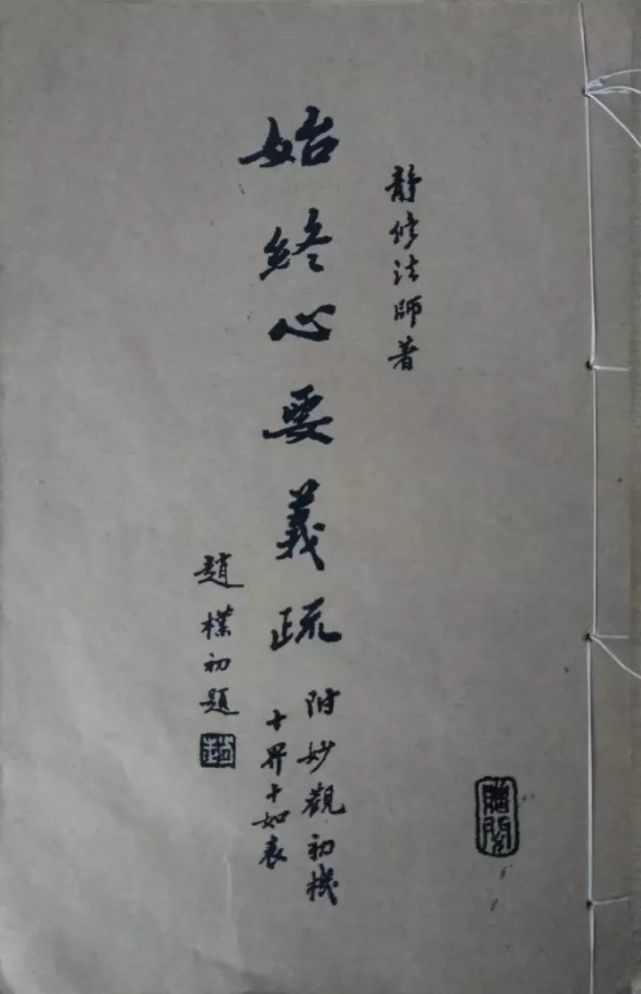 靜修法師著
始終心要義疏
附妙觀初機
十界十如表
趙樸初題